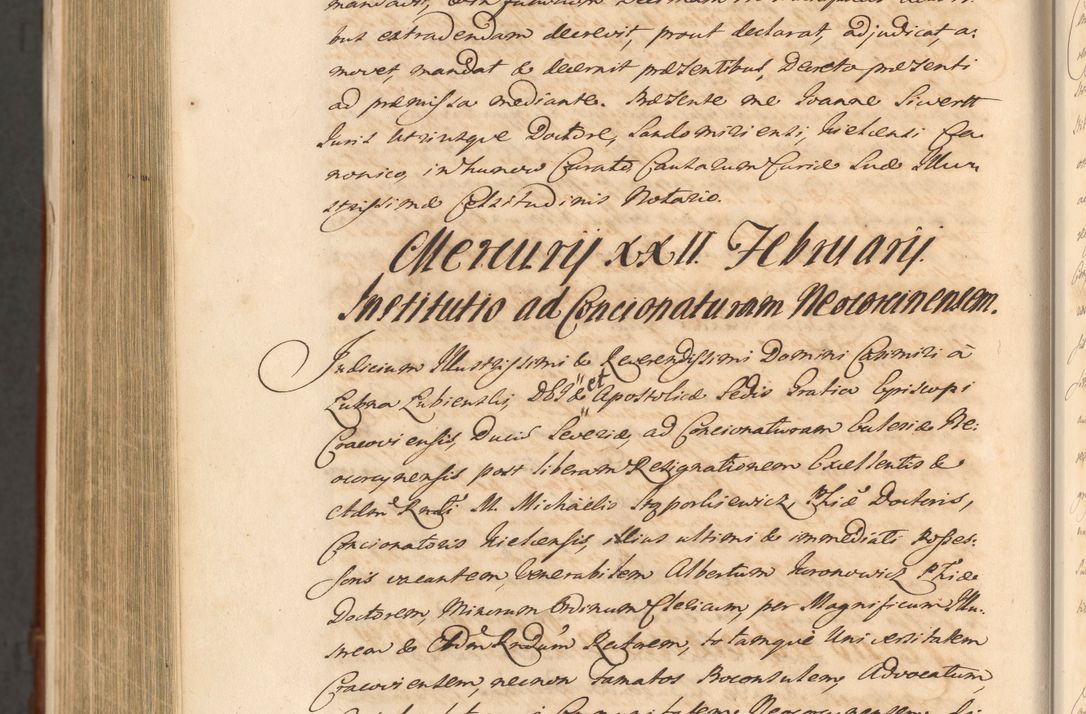 bus extradendam decrevit, prout declarat, adjudicat, a:
movet, mandat & decernit præsentibus, Decreto præsenti
ad præmissa mediante. Præsente me Joanne Siwertt
Juris Utriusque Doctore, Sandomiriensi, Kielcensi Ca
nonico, in hunow Curato, Causarum Curiæ Suæ Illu:
strissimæ Celsitudinis Notario.
Mercurij XXII Februarij.
Institutio ad Concionaturam Neocorcinensem.
Judicium Illustrissimi & Reverendissimi Domini Casimiri à
Łubna Łubienski, DEI & et Apostolicæ Sedis Gratia Episcopi
Cracoviensis, Ducis Severiæ, ad Concionaturam Ecclesiæ Ne:
ocorcynensis post liberam Resignationem Excellentis &
Admˢ Rndi M. Michaelis Stoporkiewicz, Phiæ Doctoris,
Concionatoris Kielcensis, illius ultimi & immediati Posses:
soris vacantem, Venerabilem Albertum Woronowicz Phiæ
Doctorem, Minorum Ordinum Clericum, per Magnificum Illu:
strem & Adm Rndum Rectorem, totamque Universitatem
Cracoviensem, necnon Famatos Proconsulem, Advocatum,